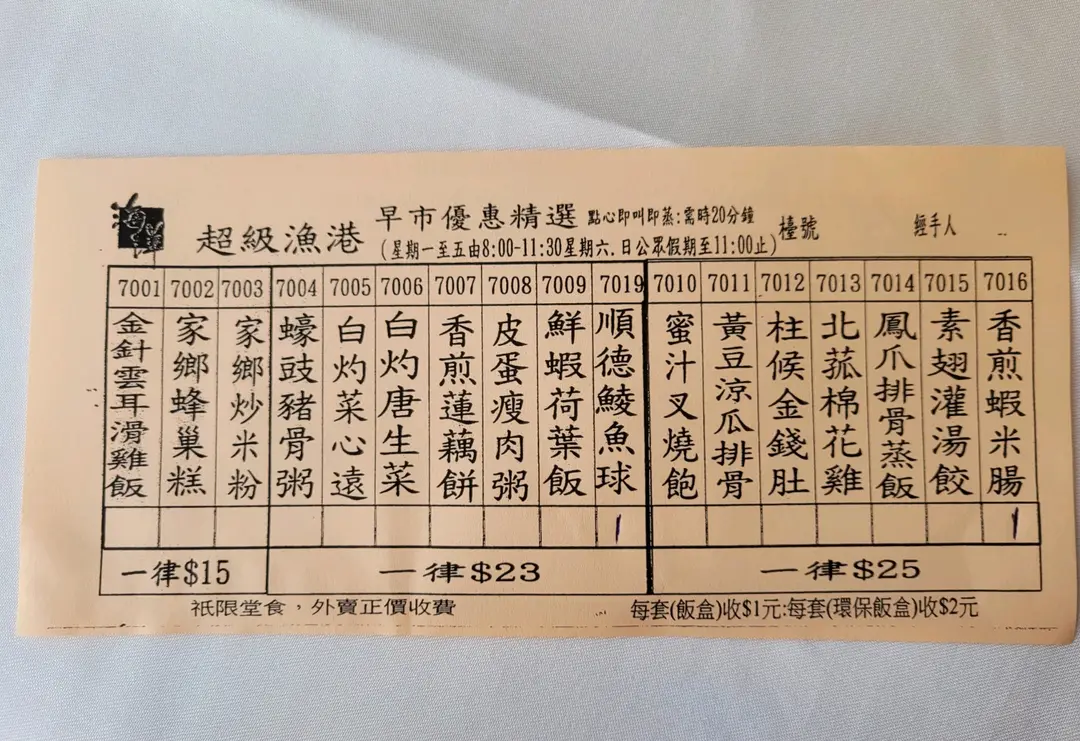 海洋
超級漁港
早市優惠精選 點心即叫即蒸:需時20分鐘
(星期一至五由8:00-11:30星期六.日公眾假期至11:00止)
檯號
經手人
7001 7002 7003 7004 7005 7006 7007 7008 7009 7019 7010 7011 7012 7013 7014 7015 7016
金針雲耳滑雞飯
家鄉蜂巢糕
家鄉炒米粉
蠔豉豬骨粥
白灼菜心遠
白灼唐生菜
香煎蓮藕餅
皮蛋瘦肉粥
鮮蝦荷葉飯
順德鯪魚球
蜜汁叉燒飽
黃豆涼瓜排骨
柱候金錢肚
北菰棉花雞
鳳爪排骨蒸飯
素翅灌湯餃
香煎蝦米腸
1 1
一律$15 一律$23 一律$25
祇限堂食，外賣正價收費 每套(飯盒)收$1元:每套(環保飯盒)收$2元